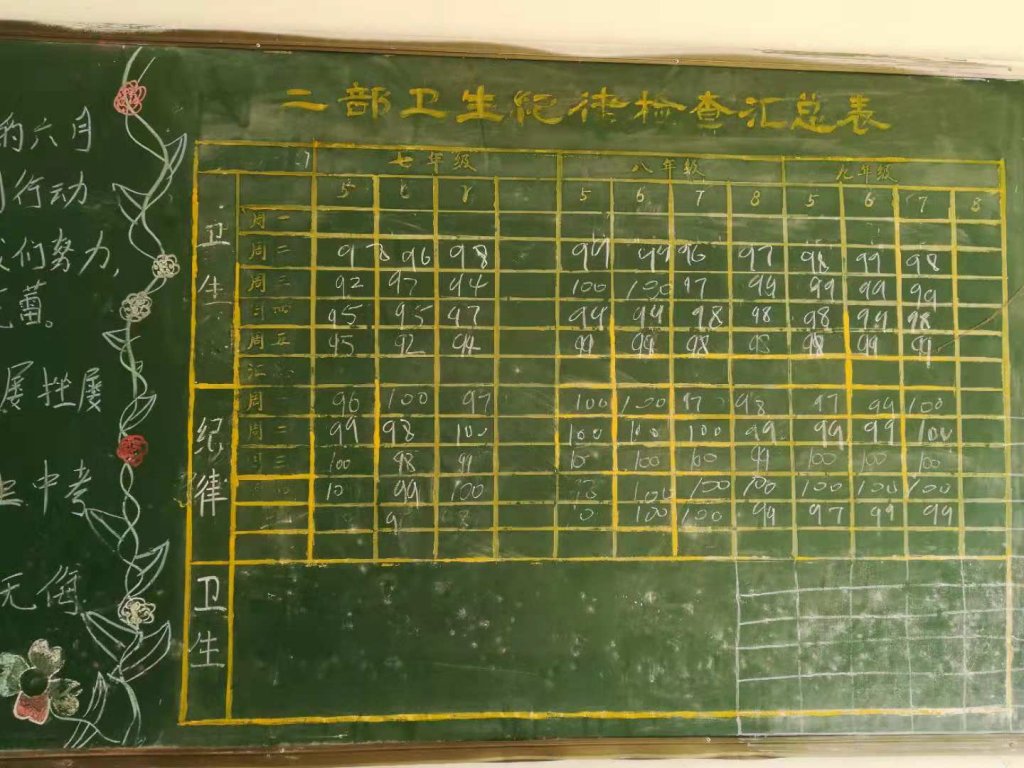 的六月
行动
我们努力,
蕾。
屡挫屡
中考
无
二部卫生纪律检查汇总表
七年级 八年级 九年级
卫生
5 6 7 8 5 6 7 8
周一
周二 98 96 98 99 99 96 97 98 99 98
周三 92 97 94 100 100 97 99 99 99 99
周四 95 95 97 99 99 98 98 98 99 98
周五 95 92 94 99 99 98 98 98 99 99
汇
纪律
周一 96 100 97 100 100 97 98 97 99 100
周二 99 98 100 100 100 100 99 99 99 100
周三 100 98 99 100 100 99 100 100 100
99 100 100 100 100 100 100 100
100 100 99 97 99 99
卫生